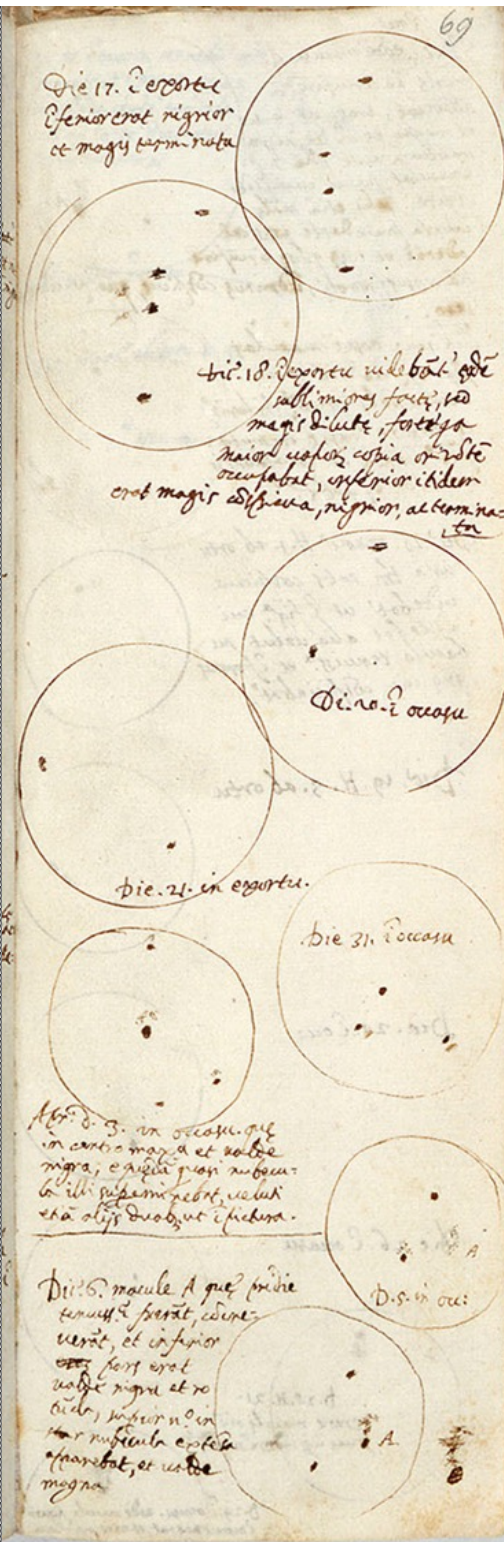 69
Die 17. ī exortu
īferior erat nigrior
et magis terminata
Die. 18. ī exortu videbāt eedē
sublimiores forte, sed
magis dilute, forte qa
maior copia orizōtē
occupabat, inferior itidem
erat magis cōspicua, nigrior, ac termina=
ta
Di. 20. ī occasu
Die. 21. in exortu.
Die 31. ī occasu
Apr. d. 3. in occasu. quę
in centro maxa et valde
nigra; quasi nubecu-
la illi supereminebat, veluti
et ā alijs duobus, ut ī pictura.
A
D. 5. in oc:
Die. 6. macule A quę pridie
tenuiss. ē fuerāt,
verāt, et inferior
pars erat
valde nigra et ro
tūda, superior nº in
star nubecula extēsa
apparebat, et valde
magna
A